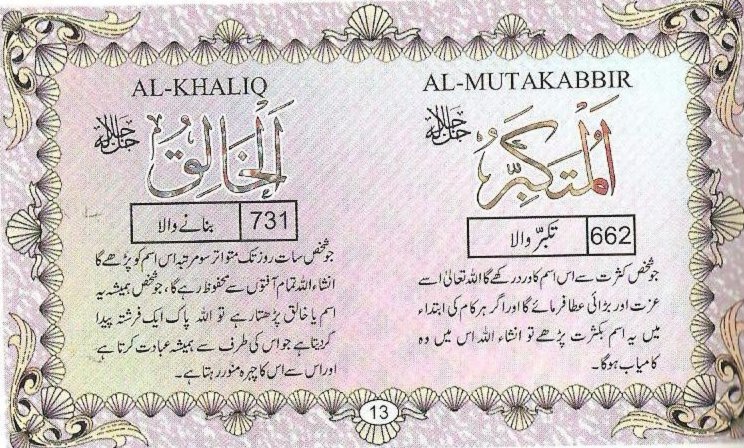 AL-MUTAKABBIR
اَلْمُتَكَبِّرُ
جل جلاله
662 تکبرّ والا
جو شخص کثرت سے اس اسم کا ورد رکھے گا اللہ تعالیٰ اسے
عزت اور بڑائی عطا فرمائے گا اور اگر ہر کام کی ابتداء
میں یہ اسم بکثرت پڑھے تو انشاء اللہ اس میں وہ
کامیاب ہوگا۔
AL-KHALIQ
اَلْخَالِقُ
جل جلاله
731 بنانے والا
جو شخص سات روز تک متواتر سو مرتبہ اس اسم کو پڑھے گا
انشاء اللہ تمام آفتوں سے محفوظ رہے گا، جو شخص ہمیشہ یہ
اسم یا خالق پڑھتا رہے تو اللہ پاک ایک فرشتہ پیدا
کردیتا ہے جو اس کی طرف سے ہمیشہ عبادت کرتا ہے
اور اس سے اس کا چہرہ منور رہتا ہے۔
13